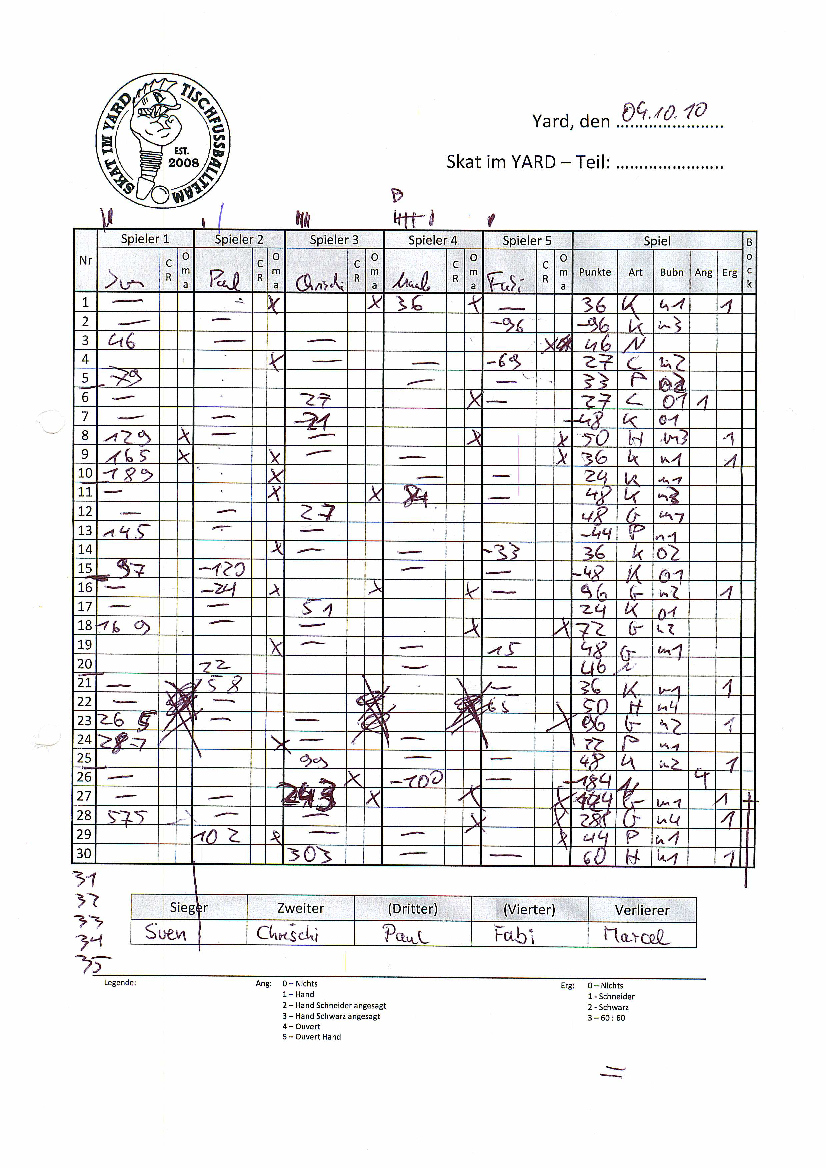 SKAT IM YARD TISCHFUSSBALLTEAM
EST.
2008
Yard, den 09.10.10
Skat im YARD – Teil: ........................
D
Nr Spieler 1 Spieler 2 Spieler 3 Spieler 4 Spieler 5 Spiel Bock
CR Oma Paul CR Oma Chrischi CR Oma CR Oma Fabi CR Oma Punkte Art Bubn Ang Erg
1 — — X X 36 X — 36 K m1 1
2 — — -96 -96 K m3
3 46 — — X 46 N
4 X — — -69 27 C m2
5 79 — — 33 P
6 — 27 X — 27 C 01 1
7 — — -21 -48 K 01
8 129 X — — X X 50 H m3 1
9 165 X X — — X 36 K m1 1
10 189 X — — 24 K m1
11 — X X 84 — 48 K
12 — — 27 48 G m1
13 145 — — -44 P m1
14 X — — -33 36 K 02
15 97 -120 — — -48 K 01
16 — -24 X X X — 96 G m2 1
17 — — 51 24 K 01
18 169 — — X X 72 G m2
19 X — — 15 48 G m1
20 22 — — 46
21 — 58 — 36 K m1 1
22 — — 65 50 H m4
23 265 — — 96 G m2 1
24 287 X — — 22 P m1
25 99 — — 48 K m2 1
26 — X -100 -184 4
27 — — 243 X X X G m1 1
28 575 — — X G m4 1
29 102 X — — X 44 P m1
30 303 — — 60 H m1 1
31
32
33
34
35
Sieger Zweiter (Dritter) (Vierter) Verlierer
Sven Chrischi Paul Fabi Marcel
Legende: Ang: 0 – Nichts Erg: 0 – Nichts
1 – Hand 1 - Schneider
2 – Hand Schneider angesagt 2 - Schwarz
3 – Hand Schwarz angesagt 3 – 60 : 60
4 – Ouvert
5 – Ouvert Hand